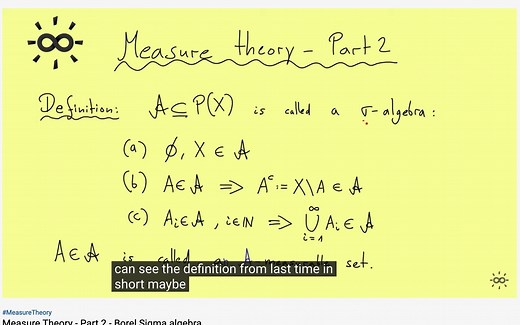 Measure theory - Part 2
Definition: 𝒜 ⊆ P(X) is called a σ-algebra:
(a) ∅, X ∈ 𝒜
(b) A ∈ 𝒜 ⇒ Aᶜ := X\A ∈ 𝒜
(c) Aᵢ ∈ 𝒜, i ∈ ℕ ⇒ ⋃ᵢ₌₁^∞ Aᵢ ∈ 𝒜
A ∈ 𝒜 is called an 𝒜-measurable set.
can see the definition from last time in
short maybe
#MeasureTheory
Measure Theory - Part 2 - Borel Sigma algebra